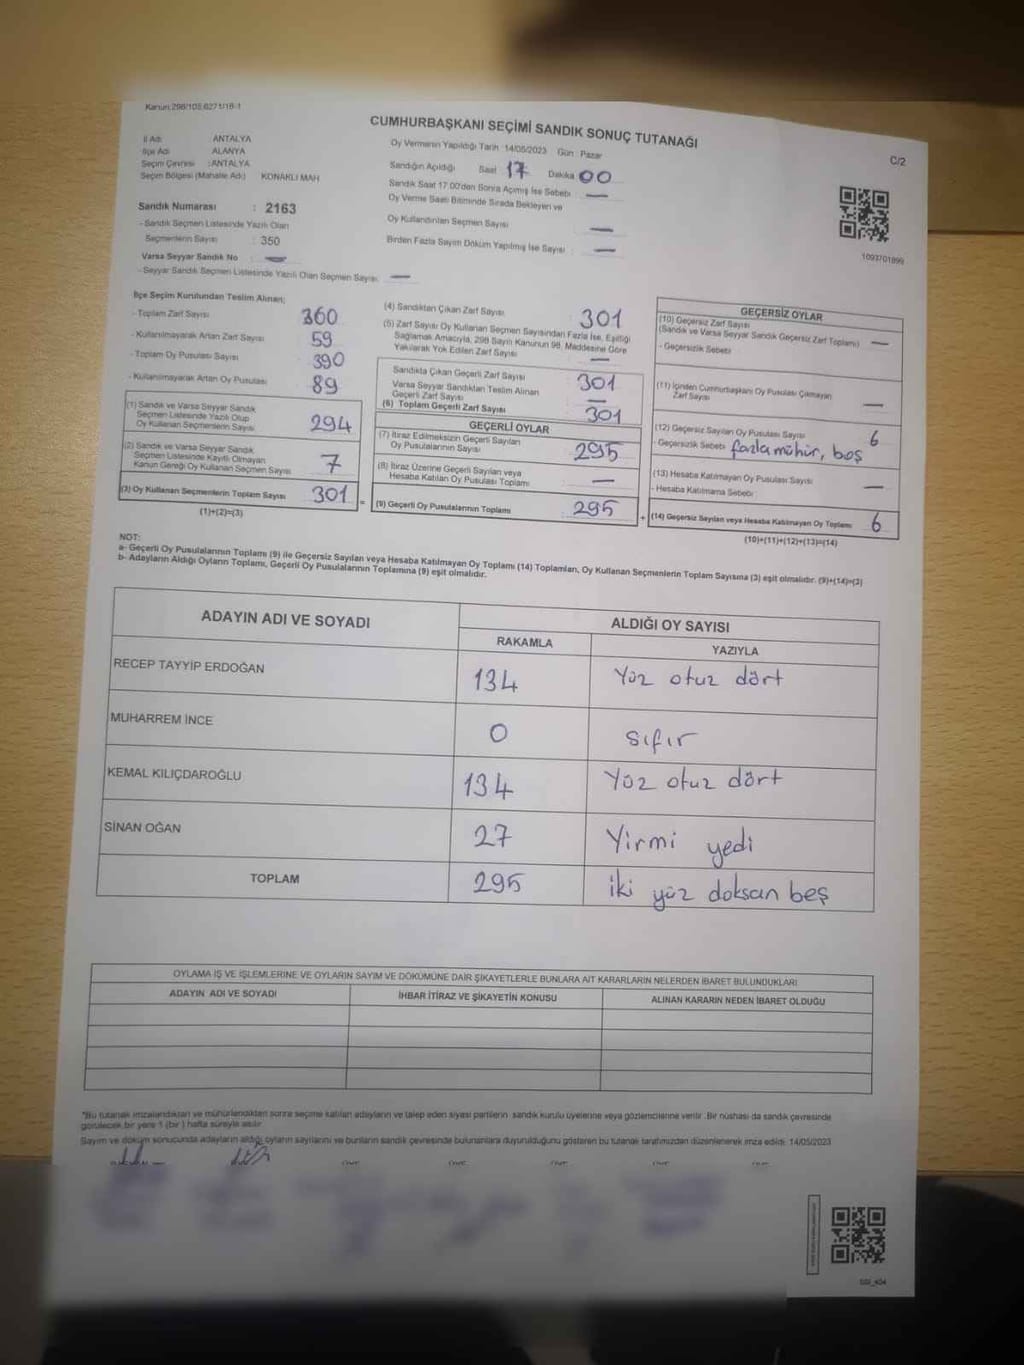 Kanun:298/105,6271/18-1
CUMHURBAŞKANI SEÇİMİ SANDIK SONUÇ TUTANAĞI
C/2
İl Adı ANTALYA
İlçe Adı ALANYA
Seçim Çevresi :ANTALYA
Seçim Bölgesi (Mahalle Adı) KONAKLI MAH
Sandık Numarası : 2163
- Sandık Seçmen Listesinde Yazılı Olan
Seçmenlerin Sayısı : 350
Varsa Seyyar Sandık No —
- Seyyar Sandık Seçmen Listesinde Yazılı Olan Seçmen Sayısı —
Oy Vermenin Yapıldığı Tarih 14/05/2023 Gün Pazar
Sandığın Açıldığı Saat 17 Dakika 00
Sandık Saat 17.00'den Sonra Açımış İse Sebebi —
Oy Verme Saati Bitiminde Sırada Bekleyen ve
Oy Kullandırılan Seçmen Sayısı —
Birden Fazla Sayım Döküm Yapılmış İse Sayısı —
1093701899
İlçe Seçim Kurulundan Teslim Alınan;
- Toplam Zarf Sayısı 360
- Kullanılmayarak Artan Zarf Sayısı 59
- Toplam Oy Pusulası Sayısı 390
- Kullanılmayarak Artan Oy Pusulası 89
(1) Sandık ve Varsa Seyyar Sandık
Seçmen Listesinde Yazılı Olup
Oy Kullanan Seçmenlerin Sayısı 294
(2) Sandık ve Varsa Seyyar Sandık
Seçmen Listesinde Kayıtlı Olmayan
Kanun Gereği Oy Kullanan Seçmen Sayısı 7
(3) Oy Kullanan Seçmenlerin Toplam Sayısı 301 =
(1)+(2)=(3)
(4) Sandıktan Çıkan Zarf Sayısı 301
(5) Zarf Sayısı Oy Kullanan Seçmen Sayısından Fazla İse, Eşitliği
Sağlamak Amacıyla, 298 Sayılı Kanunun 98. Maddesine Göre
Yakılarak Yok Edilen Zarf Sayısı —
Sandıkta Çıkan Geçerli Zarf Sayısı 301
Varsa Seyyar Sandıktan Teslim Alınan
Geçerli Zarf Sayısı —
(6) Toplam Geçerli Zarf Sayısı 301
GEÇERLİ OYLAR
(7) İtiraz Edilmeksizin Geçerli Sayılan
Oy Pusulalarının Sayısı 295
(8) İtiraz Üzerine Geçerli Sayılan veya
Hesaba Katılan Oy Pusulası Toplamı —
(9) Geçerli Oy Pusulalarının Toplamı 295 +
GEÇERSİZ OYLAR
(10) Geçersiz Zarf Sayısı
(Sandık ve Varsa Seyyar Sandık Geçersiz Zarf Toplamı) —
- Geçersizlik Sebebi
(11) İçinden Cumhurbaşkanı Oy Pusulası Çıkmayan
Zarf Sayısı —
(12) Geçersiz Sayılan Oy Pusulası Sayısı 6
- Geçersizlik Sebebi fazla mühür, boş
(13) Hesaba Katılmayan Oy Pusulası Sayısı —
- Hesaba Katılmama Sebebi
(14) Geçersiz Sayılan veya Hesaba Katılmayan Oy Toplamı 6
(10)+(11)+(12)+(13)=(14)
NOT:
a- Geçerli Oy Pusulalarının Toplamı (9) ile Geçersiz Sayılan veya Hesaba Katılmayan Oy Toplamı (14) Toplamları, Oy Kullanan Seçmenlerin Toplam Sayısına (3) eşit olmalıdır. (9)+(14)=(3)
b- Adayların Aldığı Oyların Toplamı, Geçerli Oy Pusulalarının Toplamına (9) eşit olmalıdır.
ADAYIN ADI VE SOYADI ALDIĞI OY SAYISI
RAKAMLA YAZIYLA
RECEP TAYYİP ERDOĞAN 134 Yüz otuz dört
MUHARREM İNCE 0 sıfır
KEMAL KILIÇDAROĞLU 134 Yüz otuz dört
SİNAN OĞAN 27 Yirmi yedi
TOPLAM 295 iki yüz doksan beş
OYLAMA İŞ VE İŞLEMLERİNE VE OYLARIN SAYIM VE DÖKÜMÜNE DAİR ŞİKAYETLERLE BUNLARA AİT KARARLARIN NELERDEN İBARET BULUNDUKLARI
ADAYIN ADI VE SOYADI İHBAR İTİRAZ VE ŞİKAYETİN KONUSU ALINAN KARARIN NEDEN İBARET OLDUĞU
*Bu tutanak imzalandıktan ve mühürlendikten sonra seçime katılan adayların ve talep eden siyasi partilerin sandık kurulu üyelerine veya gözlemcilerine verilir. Bir nüshası da sandık çevresinde
görülecek bir yere 1 (bir ) hafta süreyle asılır.
Sayım ve döküm sonucunda adayların aldığı oyların sayılarını ve bunların sandık çevresinde bulunanlara duyurulduğunu gösteren bu tutanak tarafımızdan düzenlenerek imza edildi. 14/05/2023